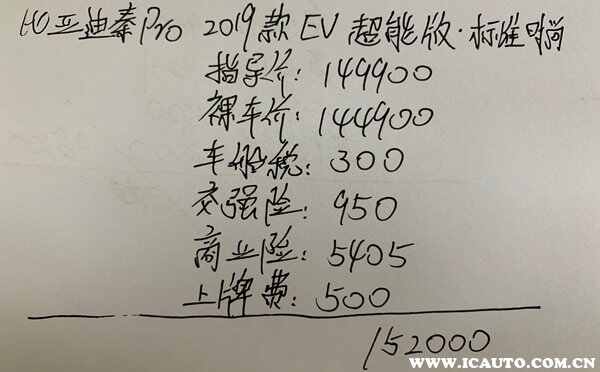 比亚迪秦Pro 2019款EV超能版·标准时尚
指导价: 149900
裸车价: 144900
车船税: 300
交强险: 950
商业险: 5405
上牌费: 500
152000
WWW.ICAUTO.COM.CN